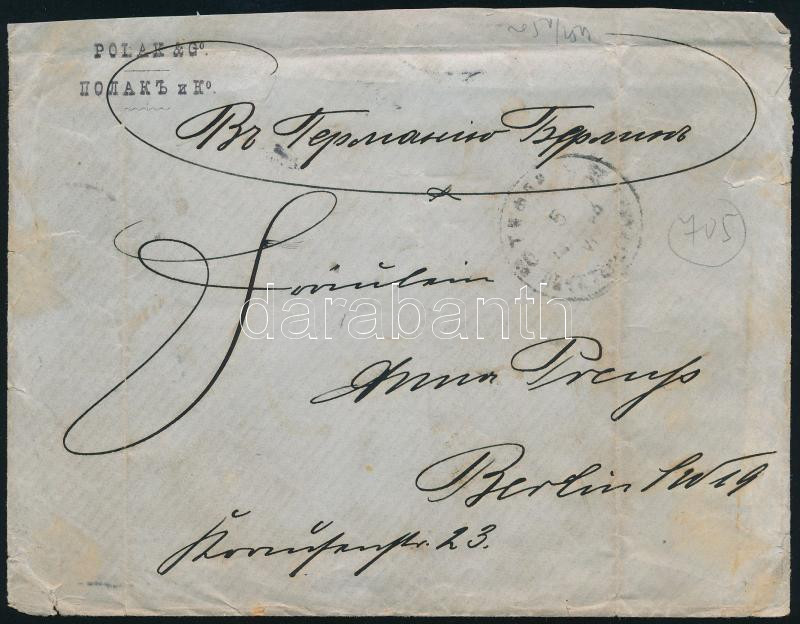 POLAK & Co.
ПОЛАКЪ и Ко.
Въ Германiю Берлинъ
705
Fräulein
darabanth
Anna Preuß
Berlin SW 19
Krausenstr. 23.